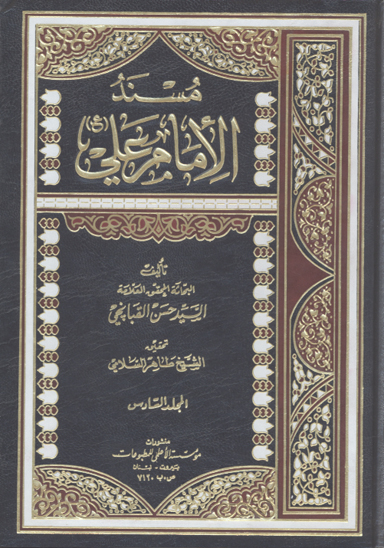 مُسْنَدُ
الإمام علي (ع)
تأليف
البحاثة المحقق العلامة
السيد حسن القبانجي
تحقيق
الشيخ طاهر السلامي
المجلد السادس
منشورات
مؤسسة الأعلمي للمطبوعات
بيروت - لبنان
ص.ب ٧١٢٠